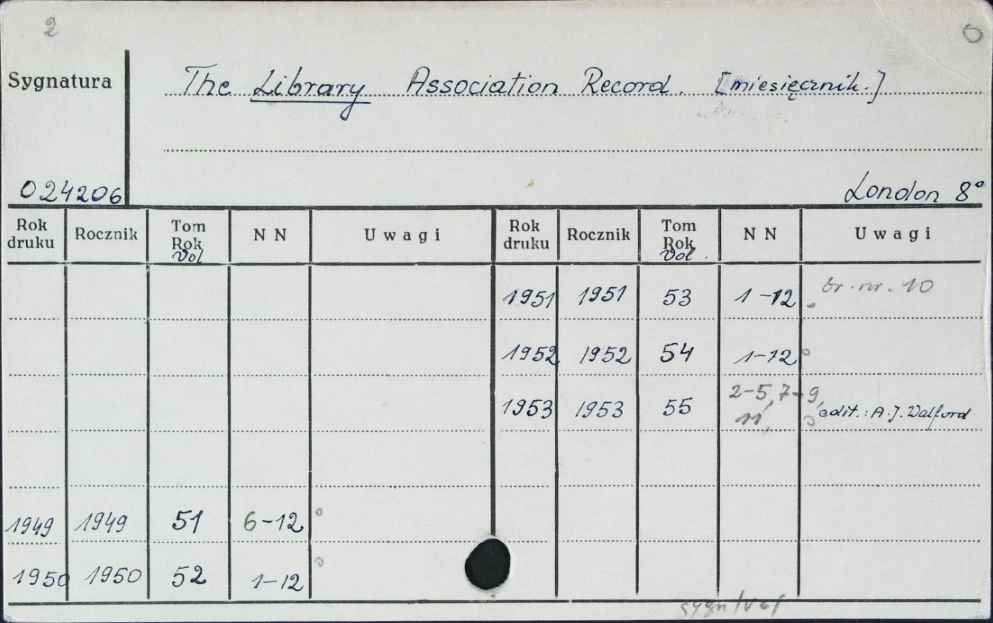 2
Sygnatura
The Library Association Record. [miesięcznik.]
024206
London 8°
Rok druku Rocznik Tom Rok Vol NN Uwagi
1949 1949 51 6-12
1950 1950 52 1-12
Rok druku Rocznik Tom Rok Vol. NN Uwagi
1951 1951 53 1-12 br. nr. 10
1952 1952 54 1-12
1953 1953 55 2-5, 7-9, 11, edit.: A.J. Walford
sygn/vol